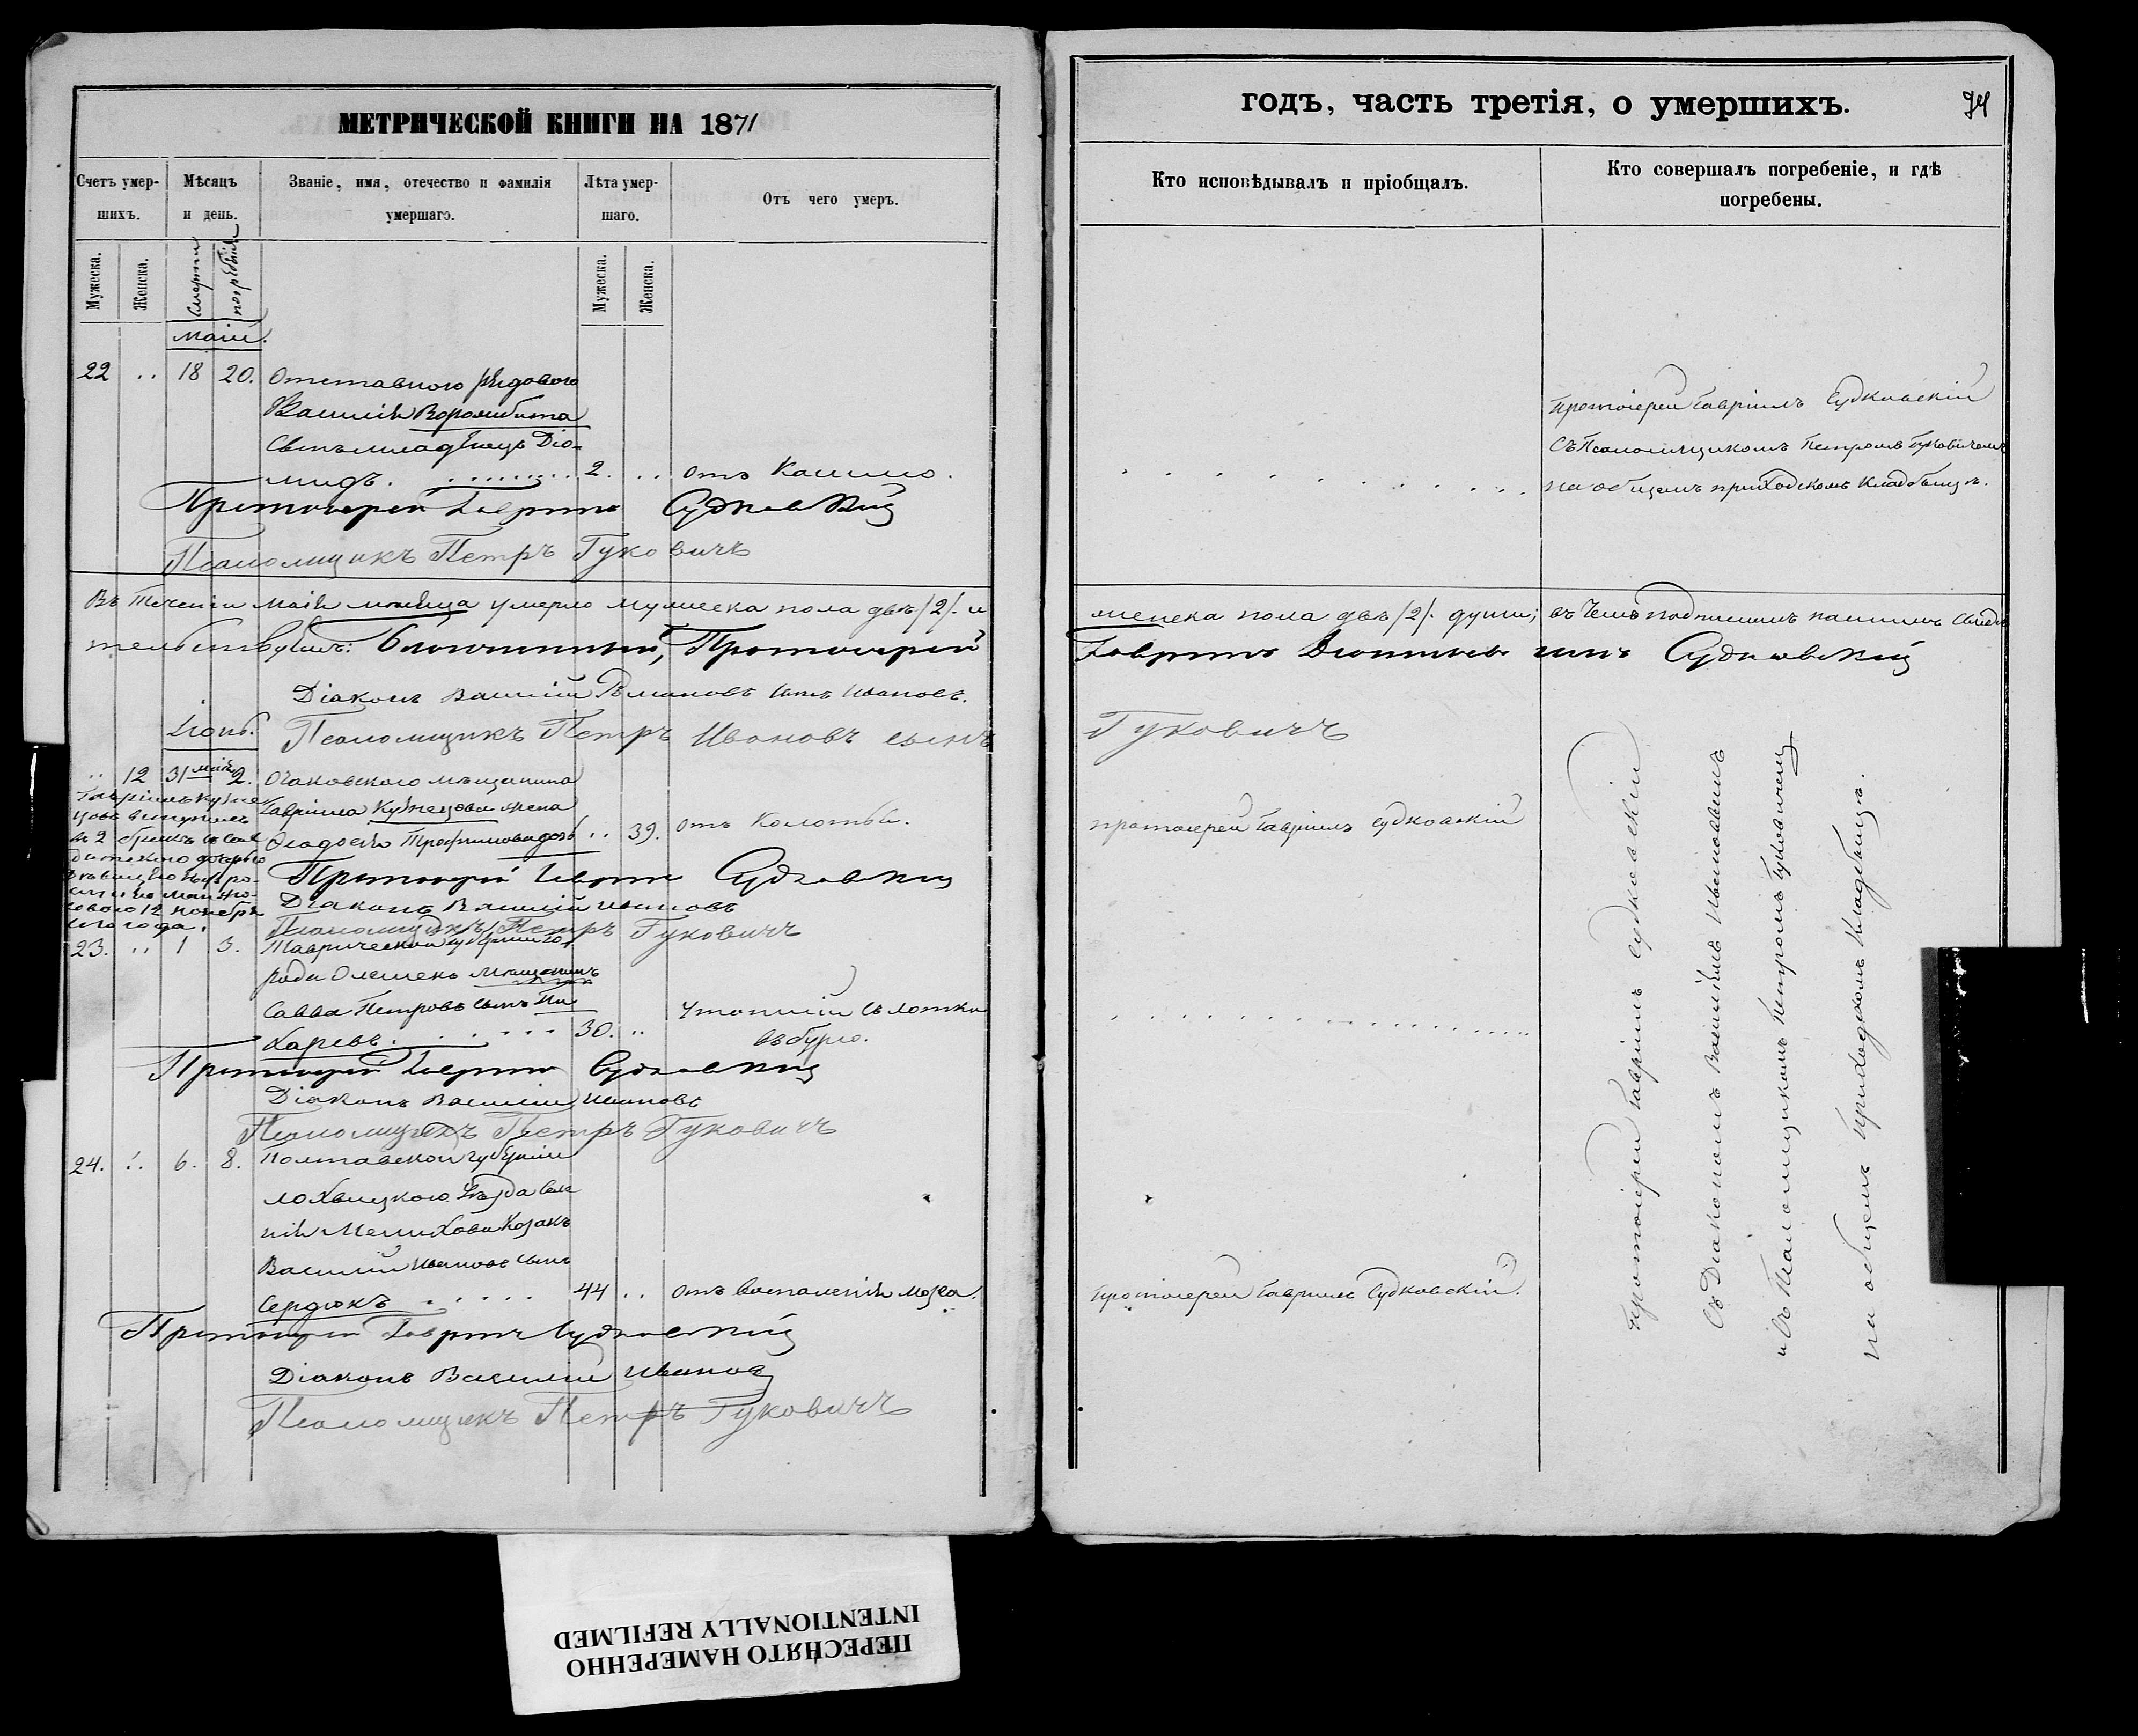 МЕТРИЧЕСКОЙ КНИГИ НА 1871
Счетъ умершихъ.
Мѣсяцъ и день.
Званіе, имя, отечество и фамилія умершаго.
Лѣта умершаго.
Отъ чего умеръ.
Мужеска.
Женска.
Смерти
погребенія
Мужеска.
Женска.
Маій.
22 .. 18 20. Отставного рядового
Василія Воромибита
сынъ младенецъ Діо-
мидъ. 2. .. отъ Кашлю.
Протоіерей Гавріилъ Судковскій
Псаломщикъ Петръ Гуковичъ
Въ теченіи Маія мѣсяца умерло мужеска пола двѣ /2/. и
тельствуемъ: Благочинный, Протоіерей
Діаконъ Василій Романовъ сынъ Ивановъ.
Іюнь.
Псаломщикъ Петръ Ивановъ сынъ
.. 12 31 маія 2. Очаковского мѣщанина
Гавріила Кузнецова жена
Ѳеодосія Трофимова дочь .. 39. отъ Колотьи.
Гавріилъ Кузне-
цовъ вступилъ
въ 2 бракъ
12 ноября
сего года.
Протоіерей Гавріилъ Судковскій
Діаконъ Василій Ивановъ
Псаломщикъ Петръ Гуковичъ
23. .. 1 3. Таврической губерніи го-
рода Олешекъ мѣщанинъ
Савва Петровъ сынъ По
харевъ. 30. .. утопшій съ лотки
въ бурю.
Протоіерей Гавріилъ Судковскій
Діаконъ Василій Ивановъ
Псаломщикъ Петръ Гуковичъ
24. .. 6. 8. Полтавской губерніи
лохвицкого уѣзда
Василій Ивановъ сынъ
Сердюкъ 44 .. отъ воспаленія мозга.
Протоіерей Гавріилъ Судковскій
Діаконъ Василій Ивановъ
Псаломщикъ Петръ Гуковичъ
годъ, часть третія, о умершихъ. 74
Кто исповѣдывалъ и пріобщалъ.
Кто совершалъ погребеніе, и гдѣ погребены.
протоіерей Гавріилъ Судковскій
съ Псаломщикомъ Петромъ Гуковичемъ
на общемъ приходскомъ кладбищѣ.
женска пола двѣ /2/. души; въ чемъ подписомъ нашимъ свидѣ
Гавріилъ сынъ Судковскій
Гуковичъ
протоіерей Гавріилъ Судковскій
протоіерей Гавріилъ Судковскій.
протоіерей Гавріилъ Судковскій
съ Діакономъ Василіемъ Ивановымъ
и съ Псаломщикомъ Петромъ Гуковичемъ
на общемъ приходскомъ кладбищѣ.
ПЕРЕСНЯТО НАМЕРЕННО
INTENTIONALLY REFILMED